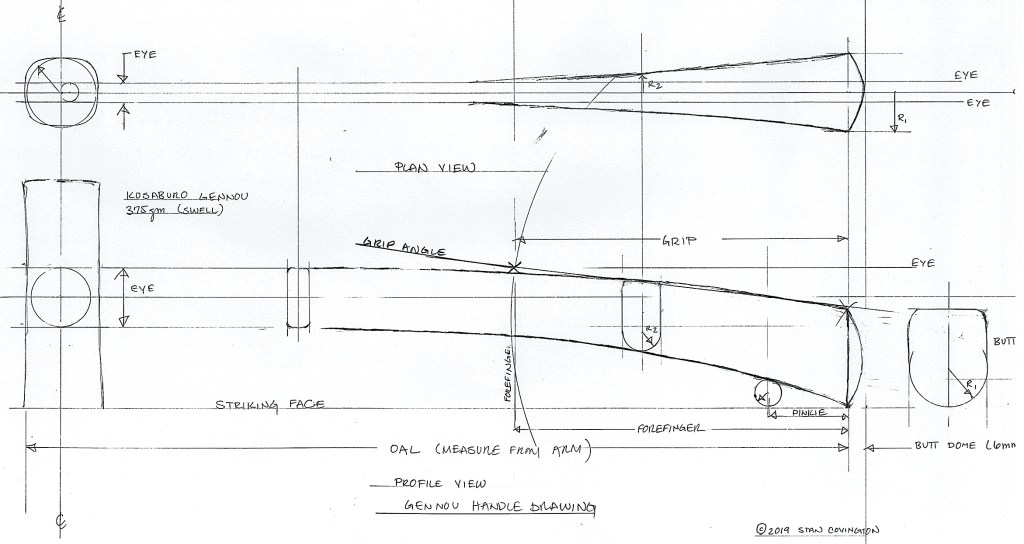 ℄
EYE
R2
EYE
EYE
R1
PLAN VIEW
KOSABURO GENNOU
375gm (SWELL)
GRIP ANGLE
GRIP
EYE
EYE
R2
BUTT
R1
FOREFINGE
STRIKING FACE
PINKIE
FOREFINGER
OAL (MEASURE FROM ARM)
BUTT DOME (6mm
PROFILE VIEW
GENNOU HANDLE DRAWING
℄
©2019 STAN COVINGTON